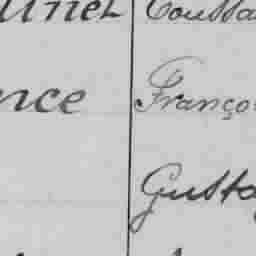 unet Toussa
nce Franço
Gusta